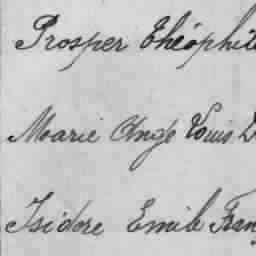 Prosper Théophile
Marie Ange Louis D
Isidore Emile Fran